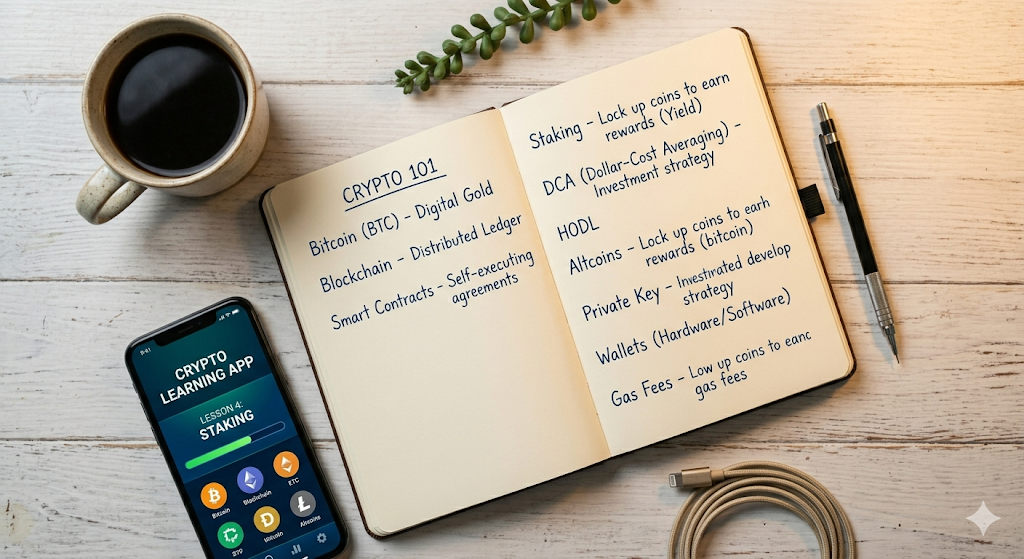 CRYPTO 101
Bitcoin (BTC) – Digital Gold
Blockchain – Distributed Ledger
Smart Contracts – Self-executing
agreements
Staking – Lock up coins to earn
rewards (Yield)
DCA (Dollar-Cost Averaging) –
Investment strategy
HODL
Altcoins – Lock up coins to earh
rewards (bitcoin)
Private Key – develop
strategy
Wallets (Hardware/Software)
Gas Fees – Low up coins to eanc
gas fees
CRYPTO
LEARNING APP
LESSON 4:
STAKING
Bitcoin
ETC